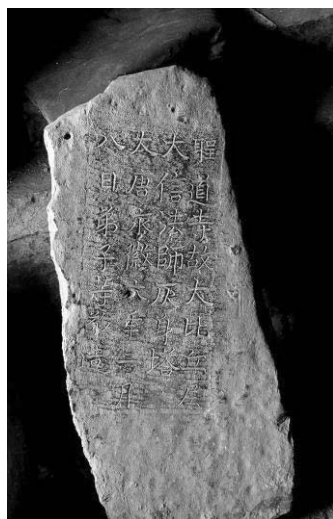 聖道寺故大比丘尼
大信法師灰身塔
大唐永徽年月
八日弟子等敬造